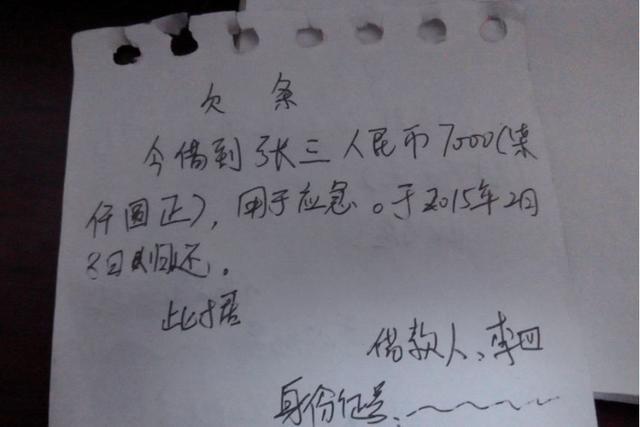 欠 条
今借到张三人民币7000(柒
仟圆正),用于应急。于2015年2月
8日归还。
此据
借款人:李四
身份证号: